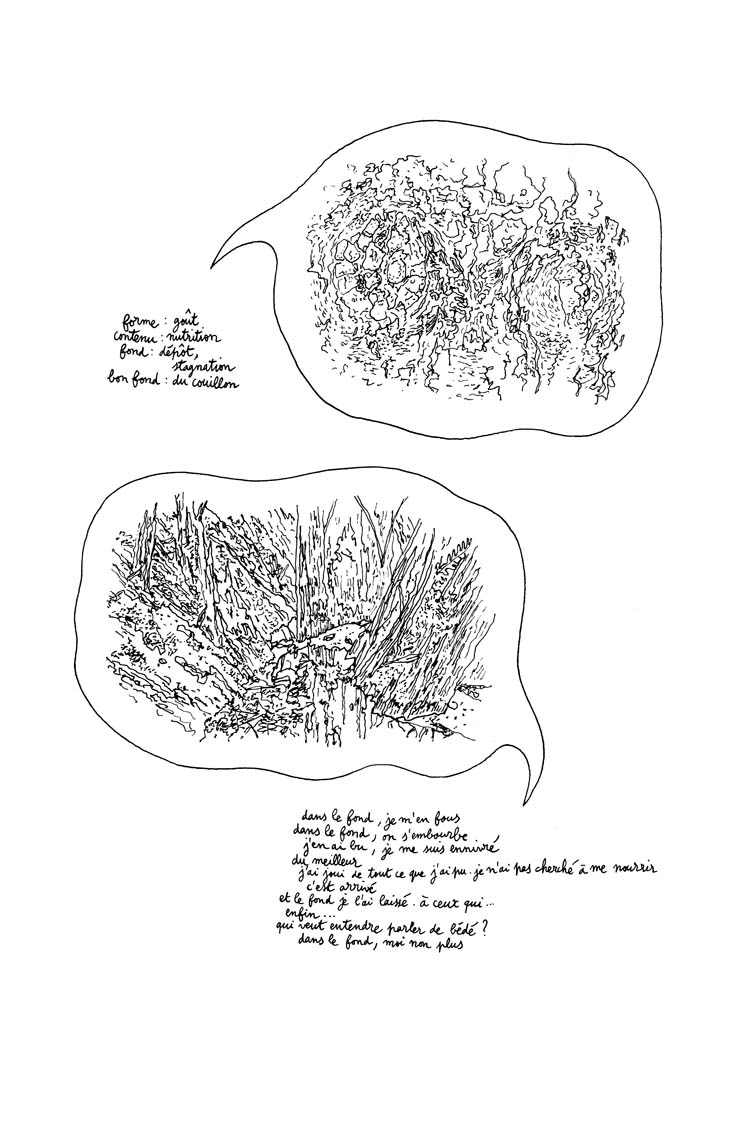 forme : goût
contenu : nutrition
fond : dépôt,
stagnation
bon fond : du couillon
dans le fond, je m'en fous
dans le fond, on s'embourbe
j'en ai bu, je me suis ennivré
du meilleur
j'ai joui de tout ce que j'ai pu. je n'ai pas cherché à me nourrir
c'est arrivé
et le fond je l'ai laissé. à ceux qui...
enfin...
qui veut entendre parler de bédé ?
dans le fond, moi non plus